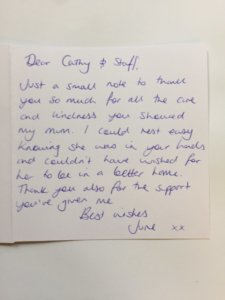 Dear Cathy & Staff,
Just a small note to thank
you so much for all the care
and kindness you showed
my mum. I could rest easy
knowing she was in your hands
and couldn't have wished for
her to be in a better home.
Thank you also for the support
you've given me
Best wishes
June xx